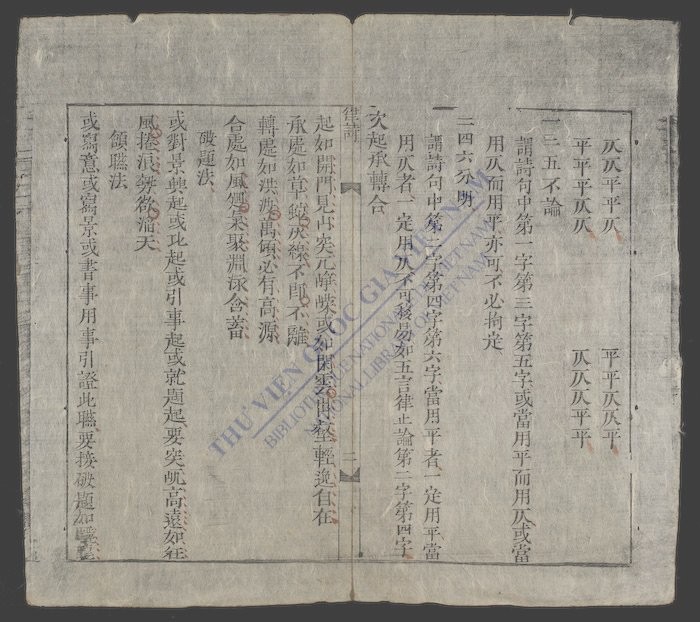 仄仄平平仄　平平仄仄平
平平平仄仄　仄仄仄平平
一三五不論
謂詩句中第一字第三字第五字或當用平而用仄或當
用仄而用平亦可不必拘定
二四六分明
謂詩句中第二字第四字第六字當用平者一定用平當
用仄者一定用仄不可移易如五言律止論第二字第四字
次起承轉合
律詩　二
起如開門見山突兀崢嶸或如閑雲出壑輕逸自在
承處如草蛇灰線不即不離
轉處如洪波萬頃必有高源
合處如風迴氣聚淵泳含蓄
破題法
或對景興起或比起或引事起或就題起要突兀高遠如狂
風捲浪勢欲滔天
領聯法
或寫意或寫景或書事用事引證此聯要接破題如驪
THƯ VIỆN QUỐC GIA VIỆT NAM
BIBLIOTHÈQUE NATIONALE DU VIETNAM
NATIONAL LIBRARY OF VIETNAM